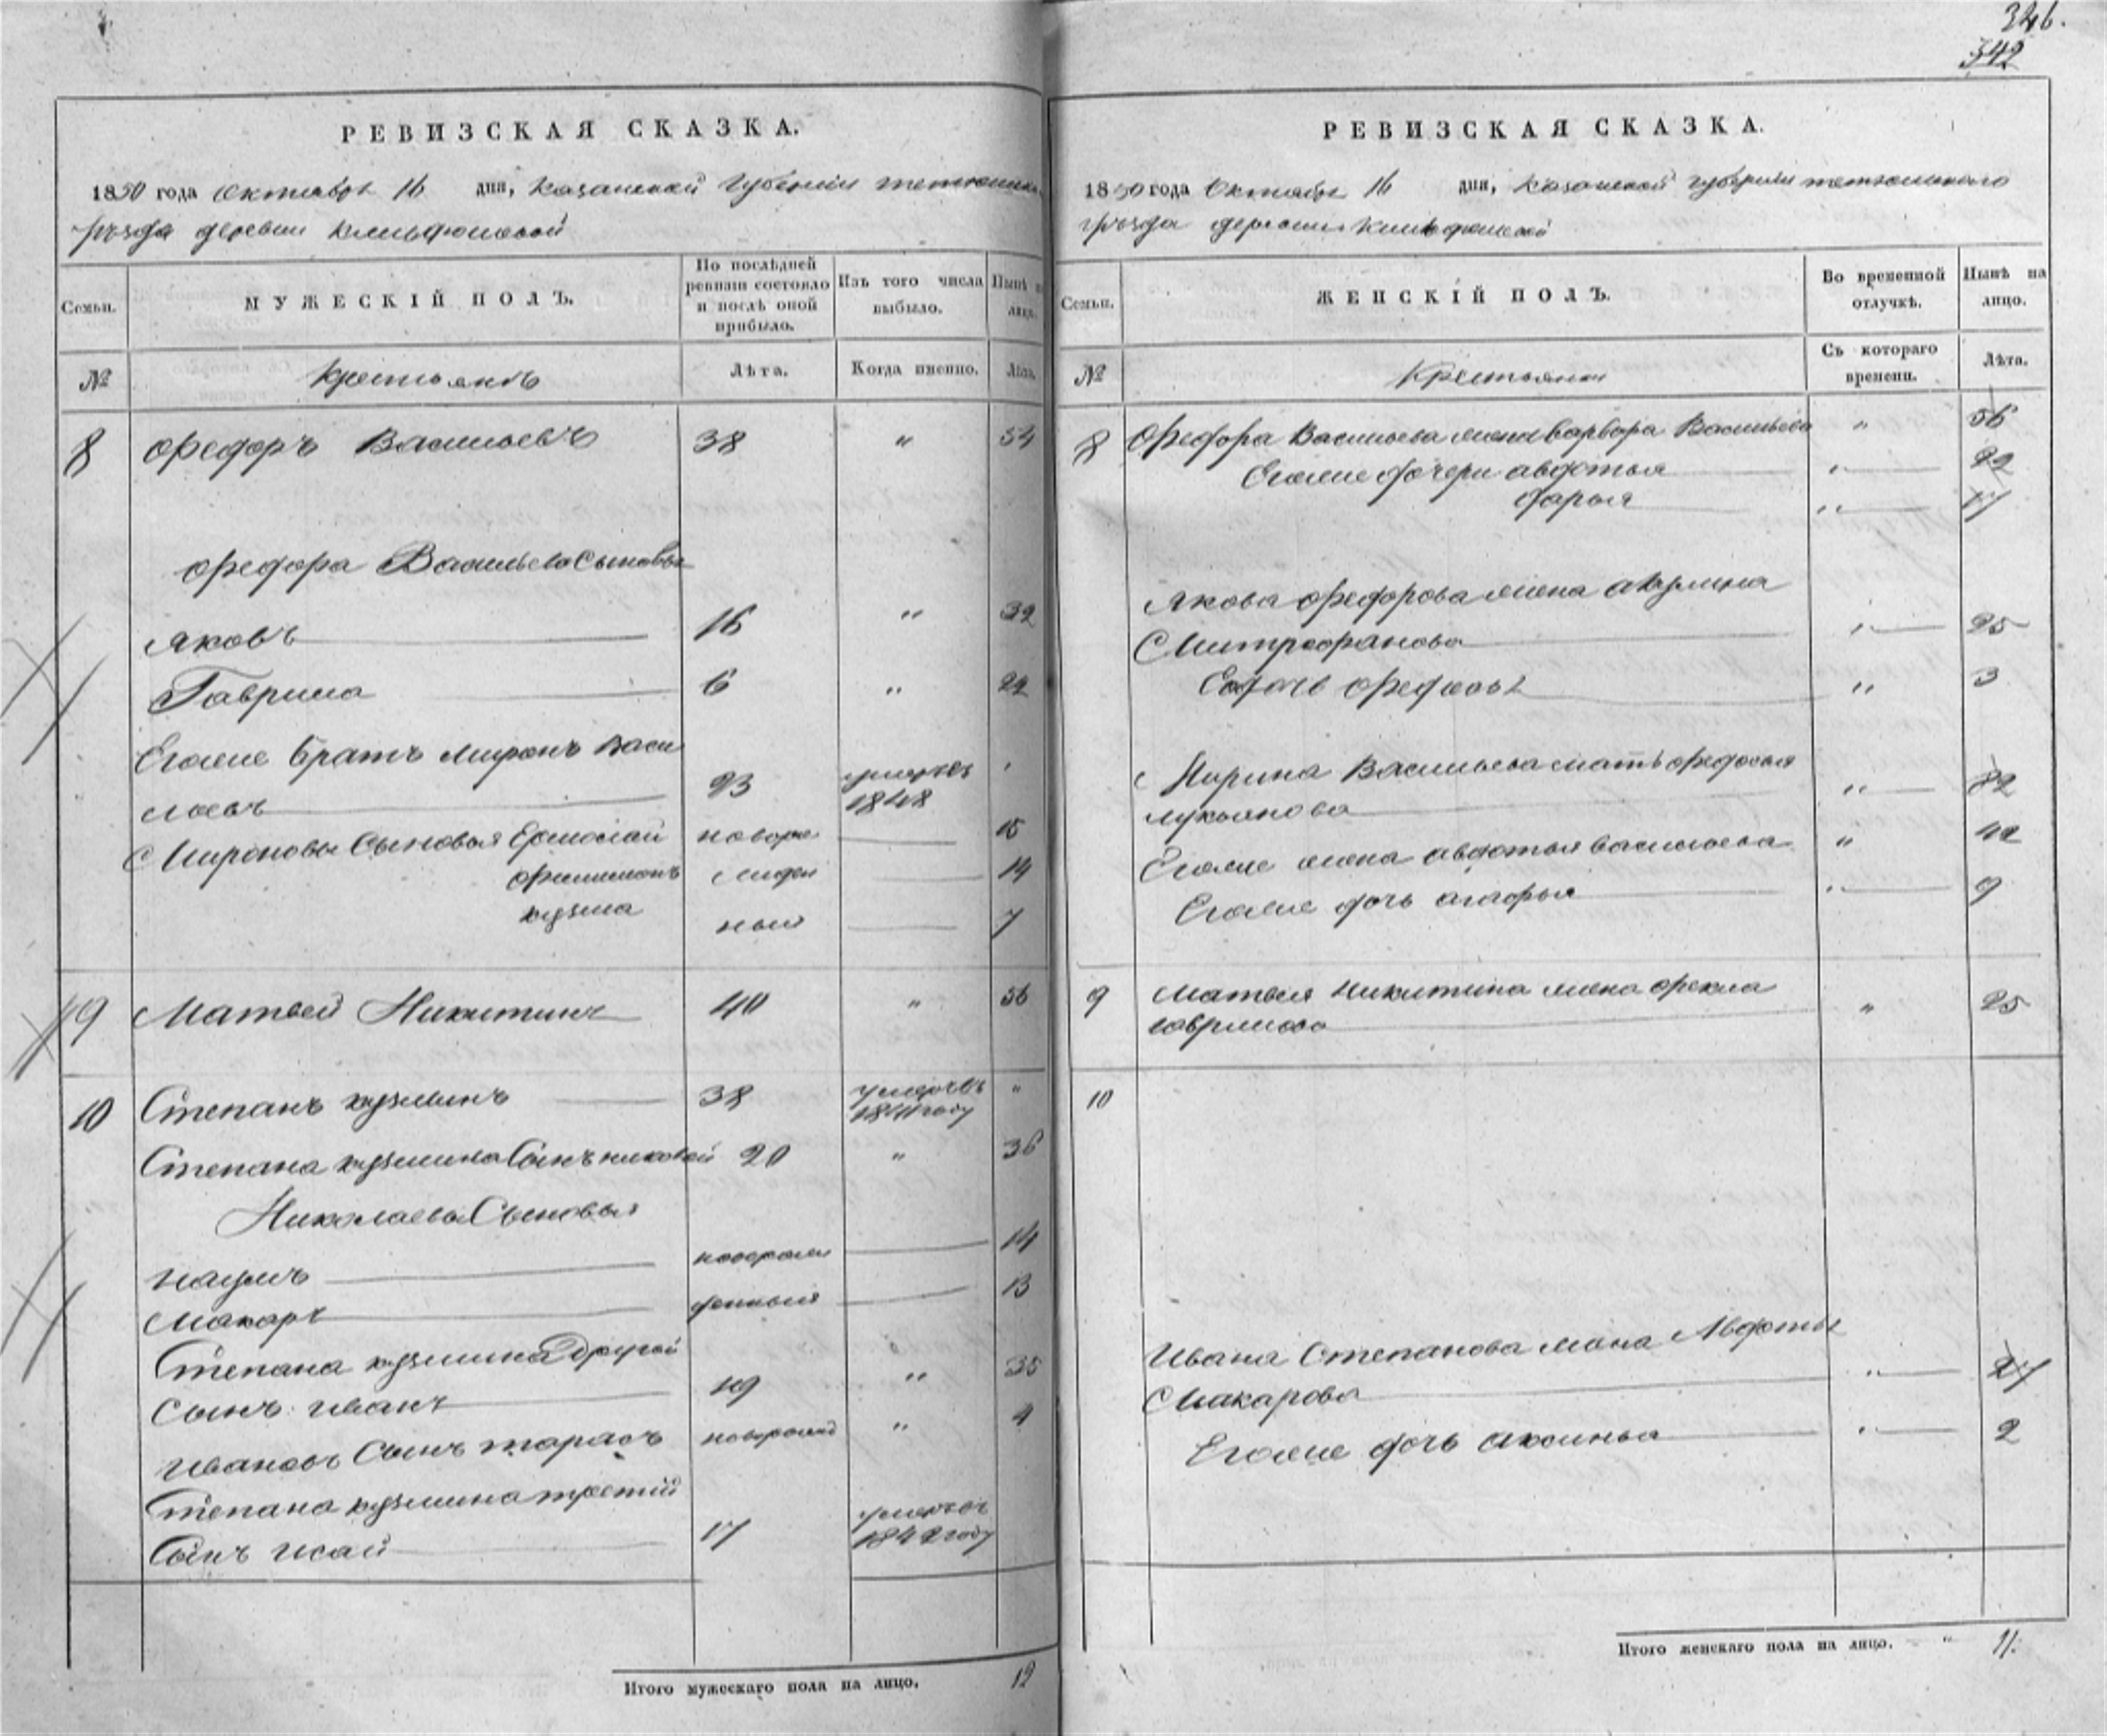 346.
342
РЕВИЗСКАЯ СКАЗКА.
1850 года Октября 16 дня, Казанской Губернии тетюшска
уѣзда деревни
Семьи.
МУЖЕСКІЙ ПОЛЪ.
По послѣдней ревизіи состояло и послѣ оной прибыло.
Изъ того числа выбыло.
Нынѣ на лицо.
№
Крестьянъ
Лѣта.
Когда именно.
Лѣта.
8 Федоръ Васильевъ 38 " 54
Федора Васильева Сыновья
Яковъ 16 " 32
Гаврила 6 " 22
Егоже братъ Миронъ Васи
льевъ 23 умеръ въ 1848
Мироновы Сыновья Ермолай новоро 15
Филимонъ жден 14
кузма ныя 7
9 Матвей Никитинъ 40 " 56
10 Степанъ кузминъ 38 умеръ въ 1841 году "
Степана кузмина Сынъ николай 20 " 36
Николаевы Сыновья
Наумъ новорож 14
Макаръ денныя 13
Степана кузмина Другой
Сынъ Иванъ 19 " 35
Ивановъ Сынъ тарасъ новорожд " 4
Степана кузмина третій
Сынъ Исай 17 умеръ въ 1842 году
Итого мужескаго пола на лицо. 12
РЕВИЗСКАЯ СКАЗКА.
1850 года Октября 16 дня, Казанской губернии тетюшскаго
уѣзда деревни
Семьи.
ЖЕНСКІЙ ПОЛЪ.
Во временной отлучкѣ.
Нынѣ на лицо.
№
Крестьянки
Съ котораго времени.
Лѣта.
8 Федора Васильева жена варвара Васильева " 56
Егоже дочери авдотья " 22
дарья " 17
Якова федорова жена акулина
Митрофанова " 25
Егодочь " 3
Мирона Васильева мать федосья
лукьянова " 82
Егоже жена авдотья васильева " 42
Егоже дочь агафья " 9
9 Матвея Никитина жена фекла
гаврилова " 25
10
Ивана Степанова жена Авдотья
Макарова " 27
Егоже дочь аксинья " 2
Итого женскаго пола на лицо. " 11.